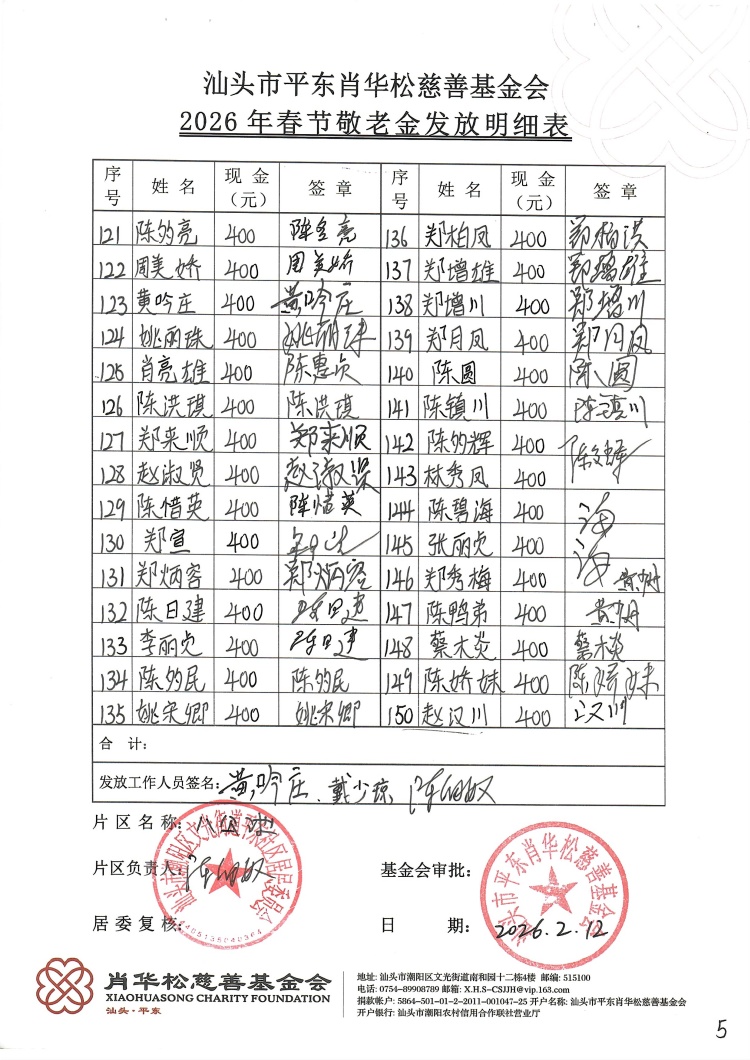 汕头市平东肖华松慈善基金会
2026年春节敬老金发放明细表
序号 姓名 现金（元） 签章 序号 姓名 现金（元） 签章
121 陈钓亮 400 136 郑柏凤 400
122 周美娇 400 周美娇 137 郑增雄 400
123 黄吟庄 400 黄吟庄 138 郑增川 400 郑增川
124 姚丽珠 400 姚丽珠 139 郑月凤 400 郑月凤
125 肖亮雄 400 陈惠贞 140 陈圆 400 陈圆
126 陈洪琪 400 陈洪琪 141 陈镇川 400 陈镇川
127 郑来顺 400 郑来顺 142 陈钓辉 400
128 赵淑贤 400 赵淑贤 143 林秀凤 400
129 陈惜英 400 陈惜英 144 陈碧海 400 海
130 郑宣 400 145 张丽贞 400 海
131 郑炳容 400 郑炳容 146 郑秀梅 400
132 陈日建 400 陈日建 147 陈鸭弟 400
133 李丽贞 400 陈日建 148 蔡木炎 400 蔡木炎
134 陈钓民 400 陈钓民 149 陈娇妹 400 陈娇妹
135 姚宋卿 400 姚宋卿 150 赵汉川 400 汉川
合计：
发放工作人员签名：黄吟庄、戴少琼
片区名称：
片区负责人：
基金会审批：
居委复核：
日期：2026.2.12
汕头市平东肖华松慈善基金会
肖华松慈善基金会
XIAOHUASONG CHARITY FOUNDATION
汕头·平东
地址: 汕头市潮阳区文光街道南和园十二栋4楼 邮编: 515100
电话: 0754-89908789 邮箱: X.H.S-CSJJH@vip.163.com
捐款帐户: 5864-501-01-2-2011-001047-25 开户名称: 汕头市平东肖华松慈善基金会
开户银行: 汕头市潮阳农村信用合作联社营业厅
5